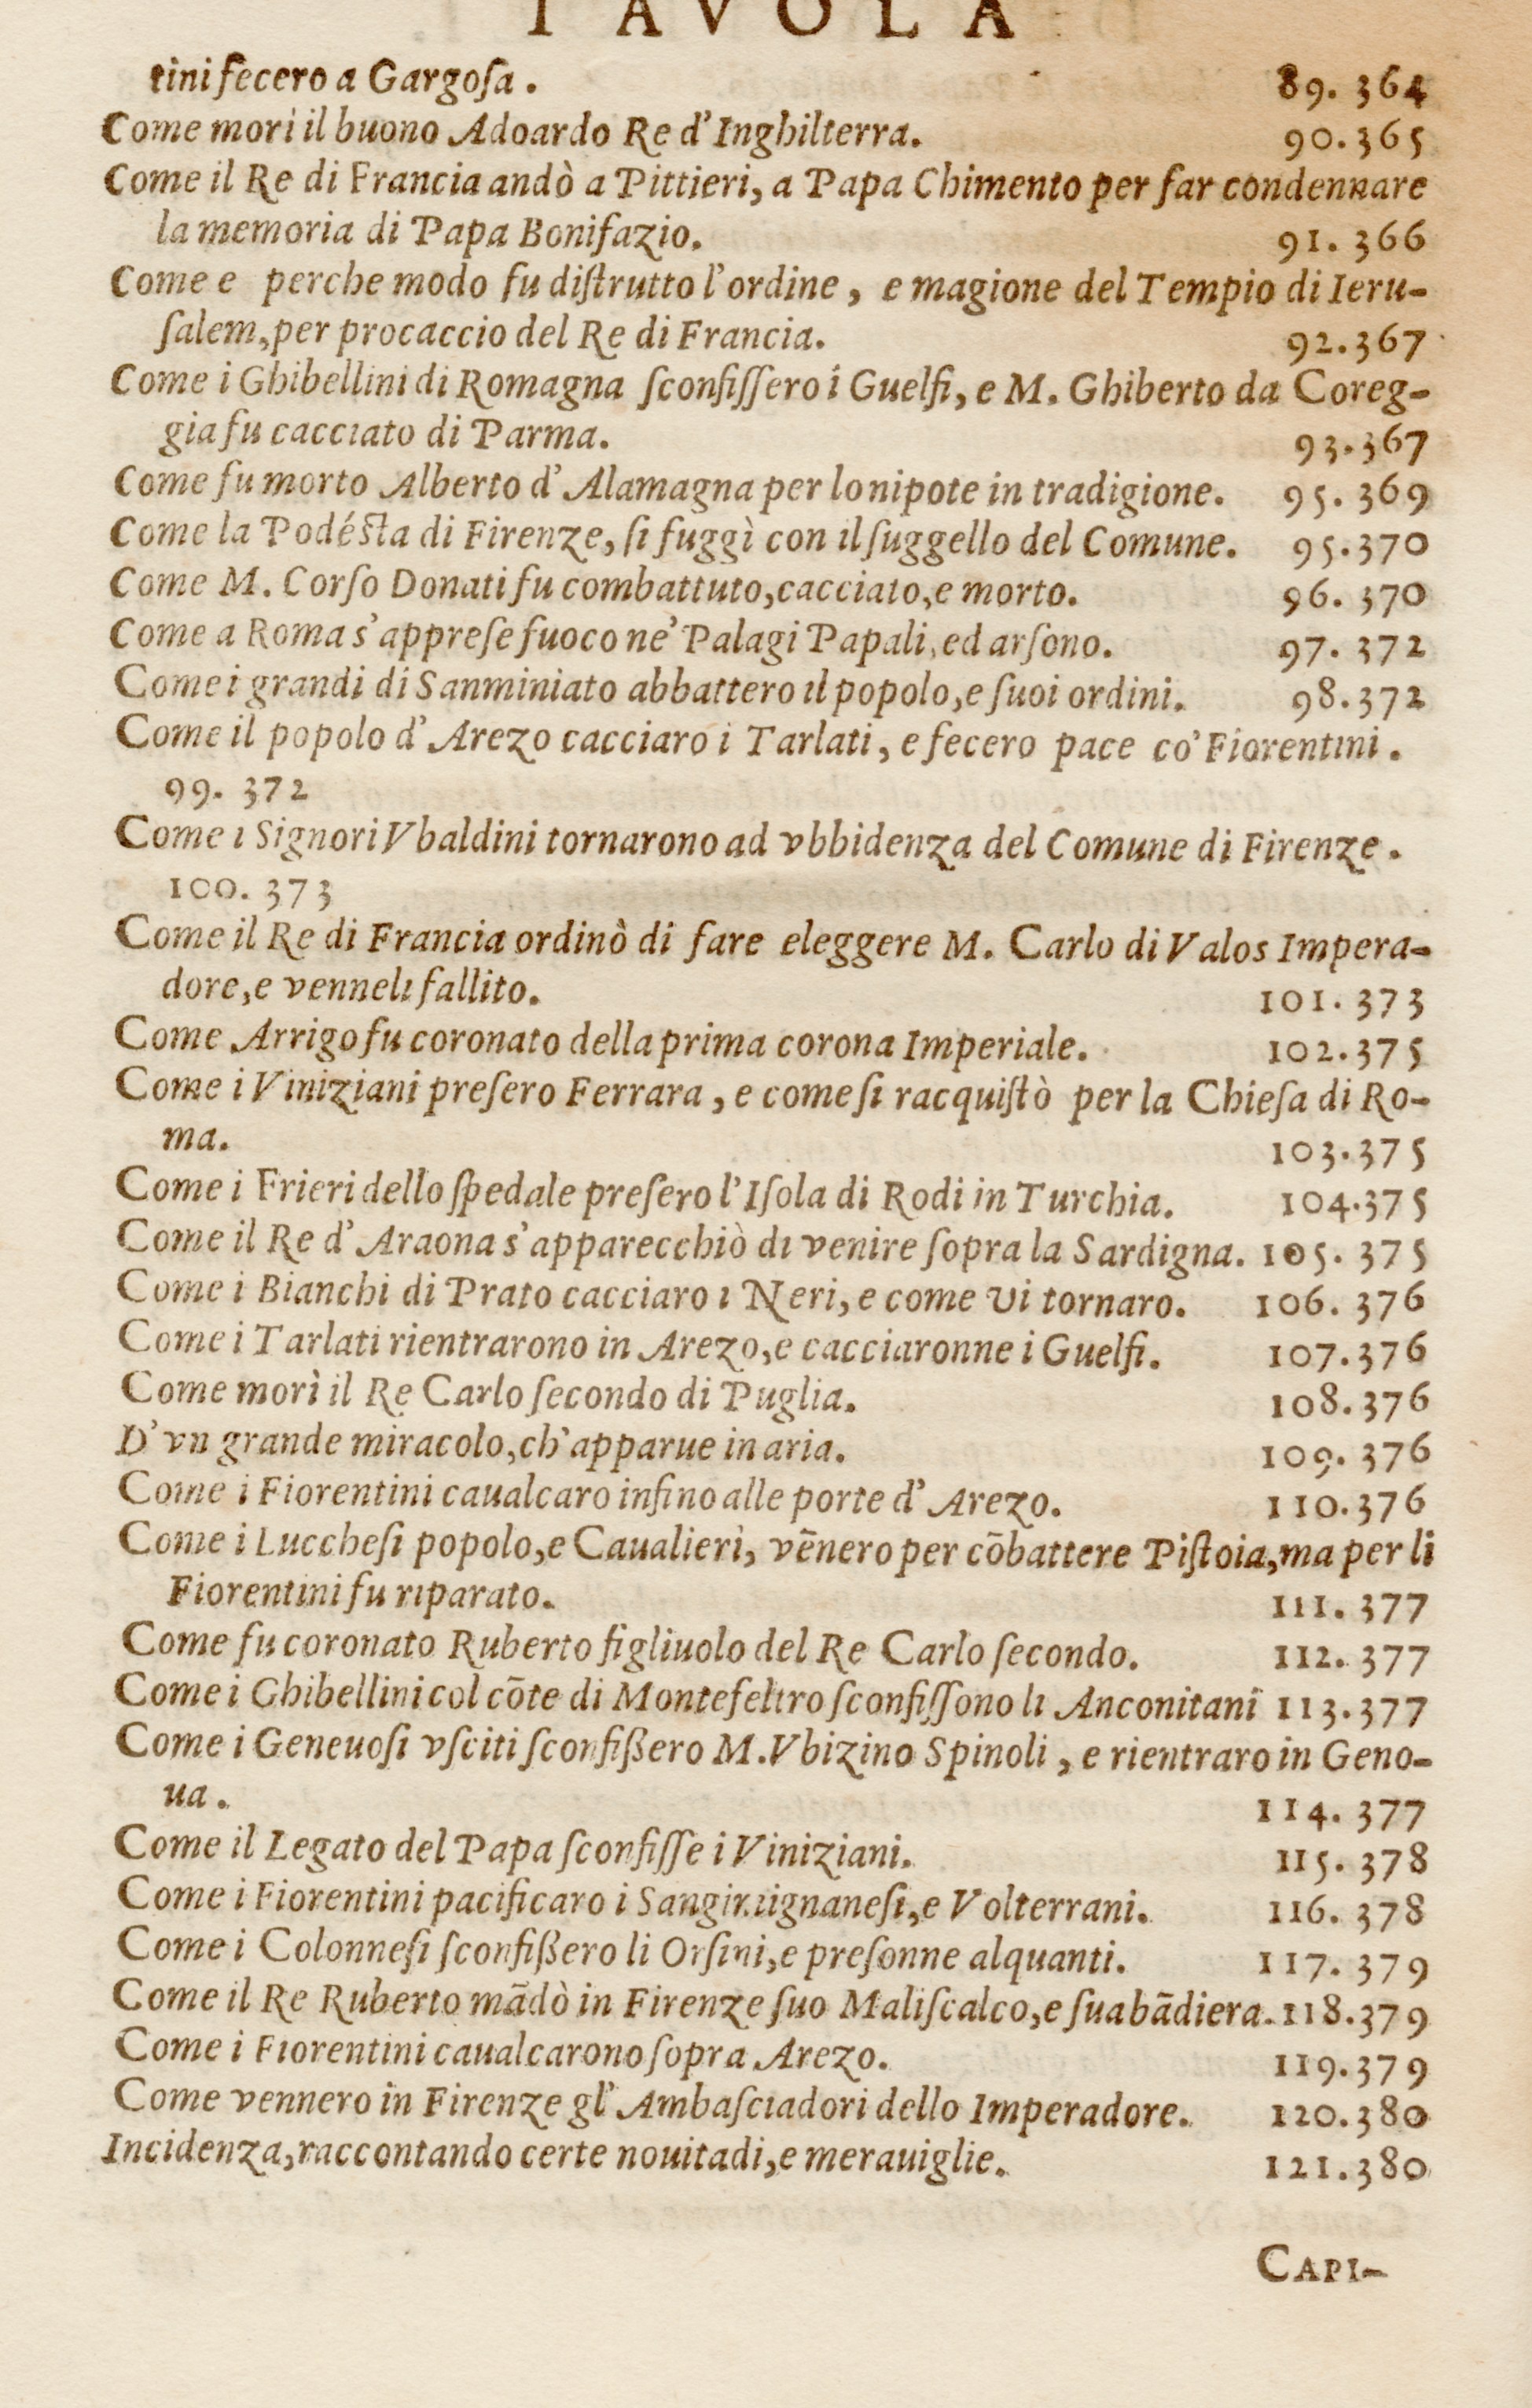 TAVOLA
tini fecero a Gargoſa. 89. 364
Come morì il buono Adoardo Re d'Inghilterra. 90. 365
Come il Re di Francia andò a Pittieri, a Papa Chimento per far condennare
la memoria di Papa Bonifazio. 91. 366
Come e perche modo fu diſtrutto l'ordine, e magione del Tempio di Ieru-
ſalem, per procaccio del Re di Francia. 92. 367
Come i Ghibellini di Romagna ſconfiſſero i Guelfi, e M. Ghiberto da Coreg-
gia fu cacciato di Parma. 93. 367
Come fu morto Alberto d'Alamagna per lo nipote in tradigione. 95. 369
Come la Podéſta di Firenze, ſi fuggì con il ſuggello del Comune. 95. 370
Come M. Corſo Donati fu combattuto, cacciato, e morto. 96. 370
Come a Roma s'appreſe fuoco ne' Palagi Papali, ed arſono. 97. 372
Come i grandi di Sanminiato abbattero il popolo, e ſuoi ordini. 98. 372
Come il popolo d'Arezo cacciaro i Tarlati, e fecero pace co' Fiorentini.
99. 372
Come i Signori Vbaldini tornarono ad vbbidenza del Comune di Firenze.
100. 373
Come il Re di Francia ordinò di fare eleggere M. Carlo di Valos Impera-
dore, e venneli fallito. 101. 373
Come Arrigo fu coronato della prima corona Imperiale. 102. 375
Come i Viniziani preſero Ferrara, e come ſi racquiſtò per la Chieſa di Ro-
ma. 103. 375
Come i Frieri dello ſpedale preſero l'Iſola di Rodi in Turchia. 104. 375
Come il Re d'Araona s'apparecchiò di venire ſopra la Sardigna. 105. 375
Come i Bianchi di Prato cacciaro i Neri, e come vi tornaro. 106. 376
Come i Tarlati rientrarono in Arezo, e cacciaronne i Guelfi. 107. 376
Come morì il Re Carlo ſecondo di Puglia. 108. 376
D'vn grande miracolo, ch'apparue in aria. 109. 376
Come i Fiorentini caualcaro infino alle porte d'Arezo. 110. 376
Come i Luccheſi popolo, e Caualieri, vēnero per cōbattere Piſtoia, ma per li
Fiorentini fu riparato. 111. 377
Come fu coronato Ruberto figliuolo del Re Carlo ſecondo. 112. 377
Come i Ghibellini col cōte di Montefeltro ſconfiſſono li Anconitani 113. 377
Come i Geneuoſi vſciti ſconfißero M. Vbizino Spinoli, e rientraro in Geno-
ua. 114. 377
Come il Legato del Papa ſconfiſſe i Viniziani. 115. 378
Come i Fiorentini pacificaro i Sangimignaneſi, e Volterrani. 116. 378
Come i Colonneſi ſconfißero li Orſini, e preſonne alquanti. 117. 379
Come il Re Ruberto mādò in Firenze ſuo Maliſcalco, e ſua bādiera. 118. 379
Come i Fiorentini caualcarono ſopra Arezo. 119. 379
Come vennero in Firenze gl' Ambaſciadori dello Imperadore. 120. 380
Incidenza, raccontando certe nouitadi, e merauiglie. 121. 380
CAPI-